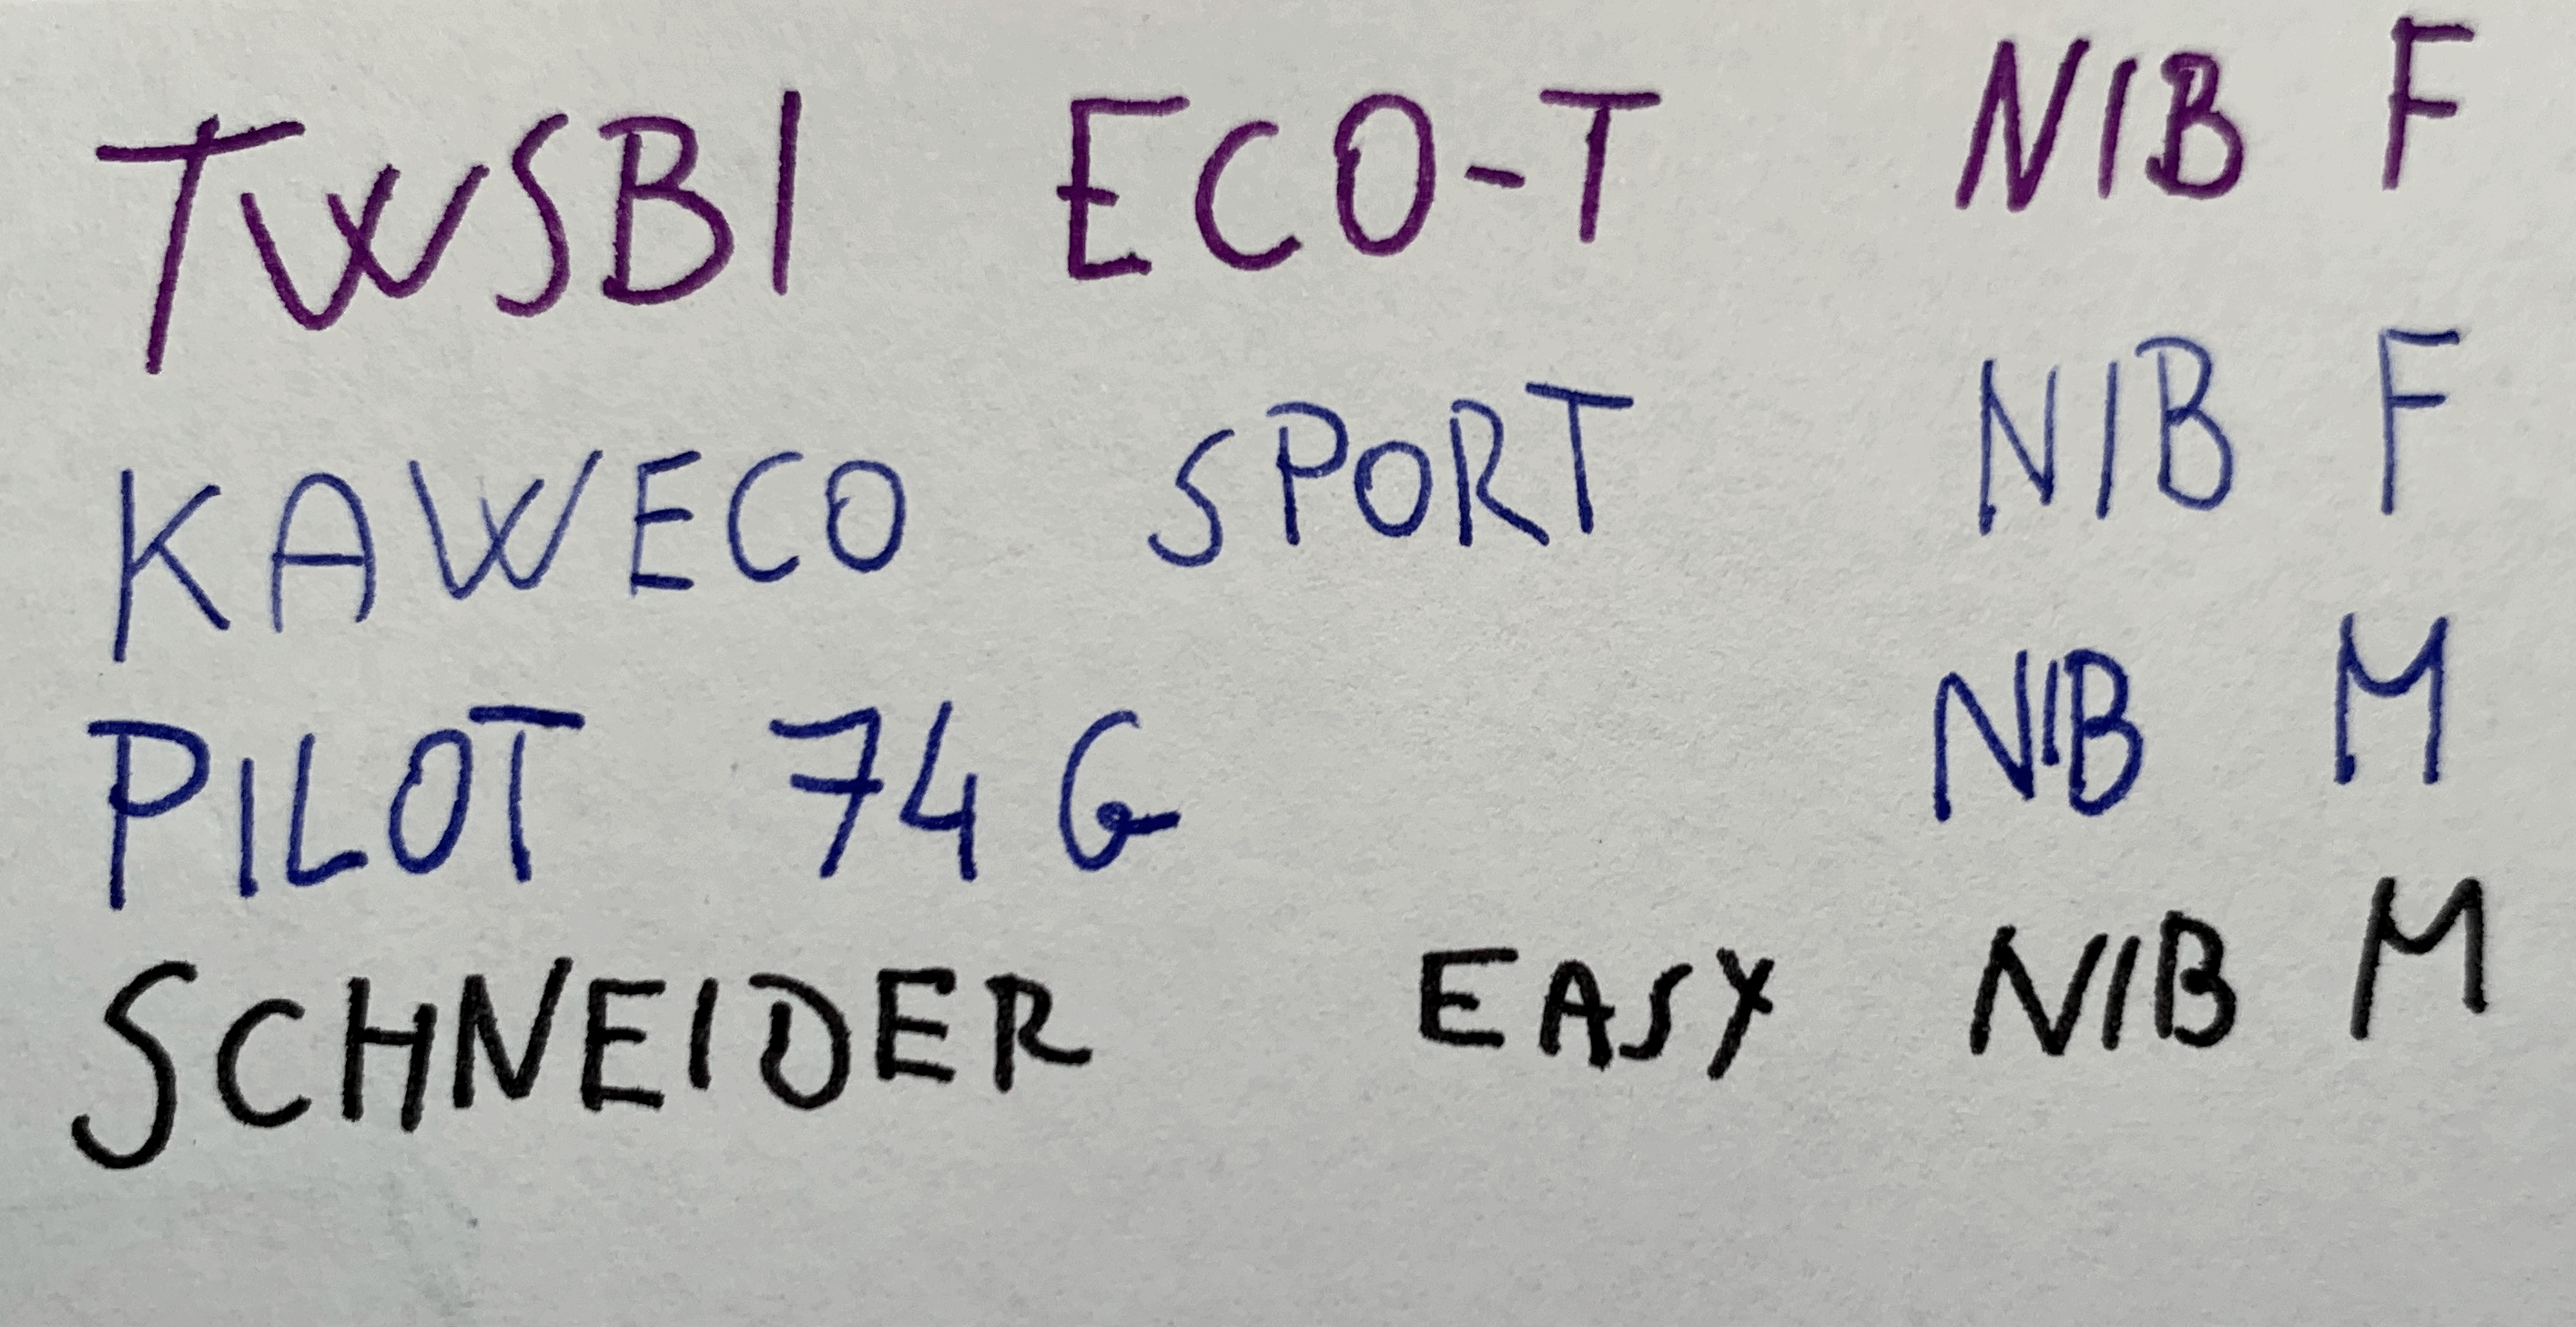 TWSBI ECO-T NIB F
KAWECO SPORT NIB F
PILOT 74 G NIB M
SCHNEIDER EASY NIB M